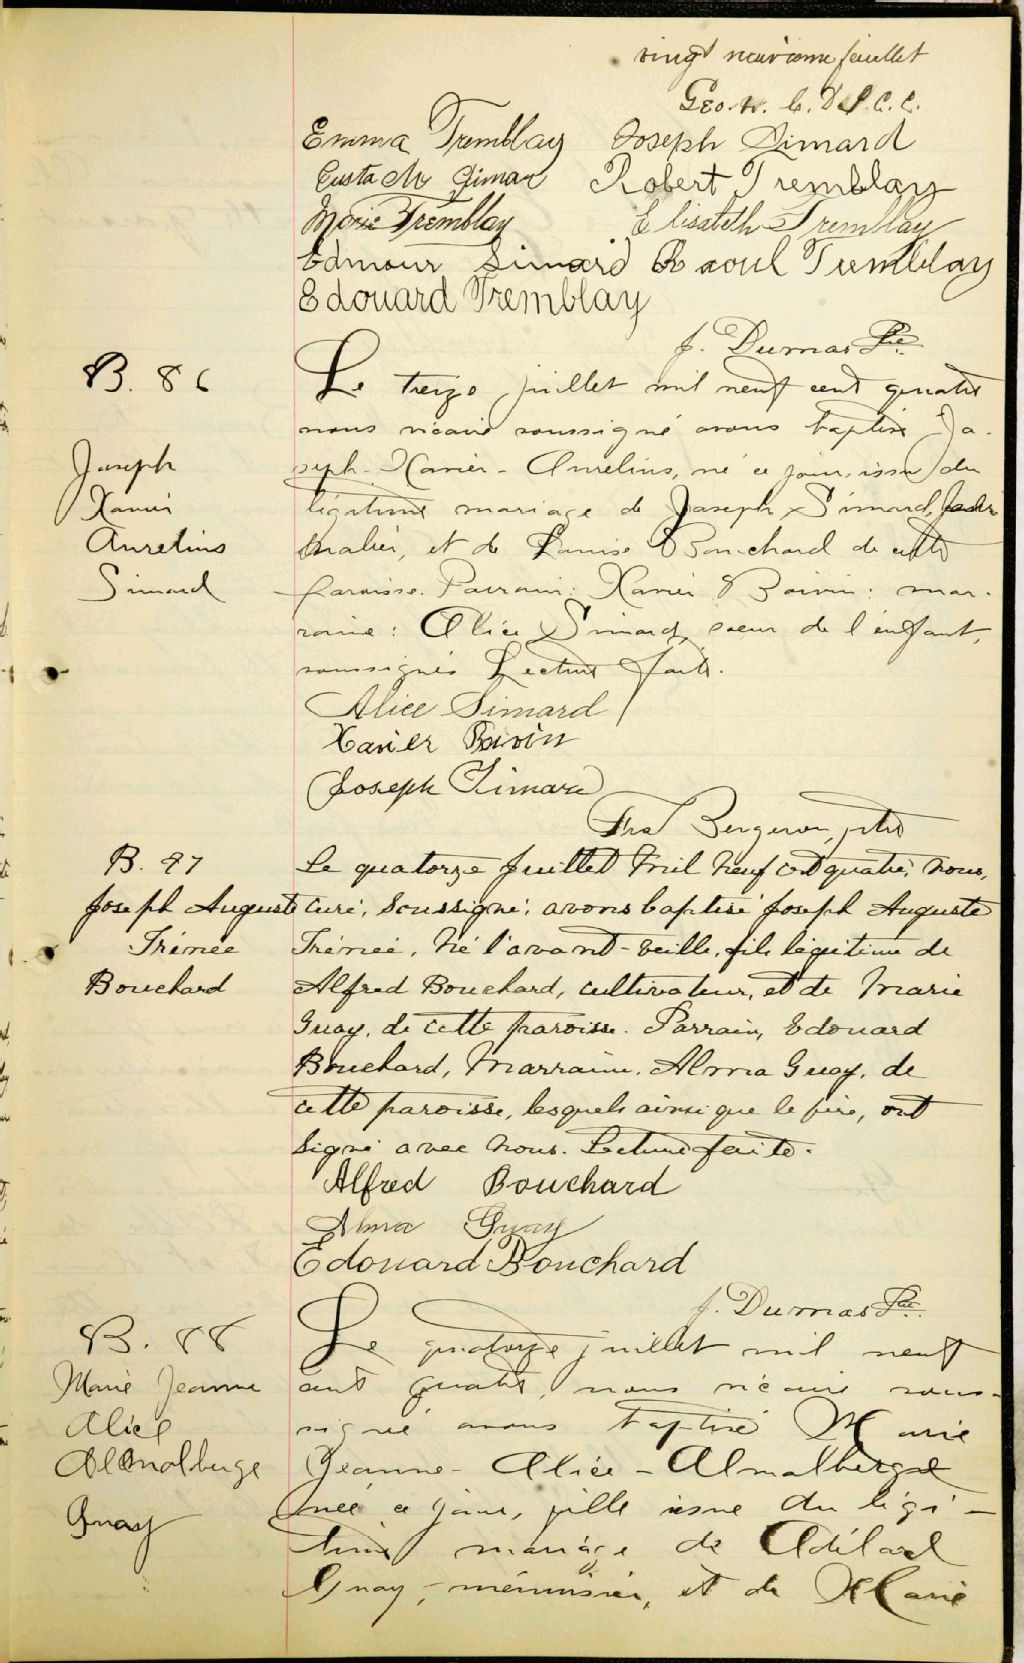 vingt neuvième feuillet
Geo. W. C. D.P.C.C.
Emma Tremblay Joseph Simard
Simar Robert Tremblay
Marie Tremblay Elisabeth Tremblay
Edmour Simard Raoul Tremblay
Edouard Tremblay
J. Dumas Ptre
B. 86
Joseph
Xavier
Aurelius
Simard
Le treize juillet mil neuf cent quatre
nous vicaire soussigné avons baptisé Jo-
seph-Xavier-Aurelius, né ce jour, issu du
légitime mariage de Joseph Simard,
et de Louise Bouchard de cette
paroisse. Parrain: Xavier Boivin: mar-
raine: Alice Simard, soeur de l'enfant,
soussignés Lecture faite.
Alice Simard
Xavier Boivin
Joseph Simard
Frs Bergeron, ptre
B. 87
Joseph Auguste
Irénée
Bouchard
Le quatorze Juillet mil neuf cent quatre, nous,
curé, soussigné, avons baptisé Joseph Auguste
Irénée, né l'avant-veille, fils légitime de
Alfred Bouchard, cultivateur, et de Marie
Guay, de cette paroisse. Parrain, Edouard
Bouchard, Marraine, Alma Guay, de
cette paroisse, lesquels ainsi que le père, ont
signé avec nous. Lecture faite.
Alfred Bouchard
Alma Guay
Edouard Bouchard
J. Dumas Ptre
B. 88
Marie Jeanne
Alice
Almalberge
Guay
Le quatorze juillet mil neuf
cent quatre, nous vicaire sous-
signé avons baptisé Marie
Jeanne-Alice-Almalberge
née ce jour, fille issue du légi-
time mariage de Adélard
Guay, ménuisier, et de Marie